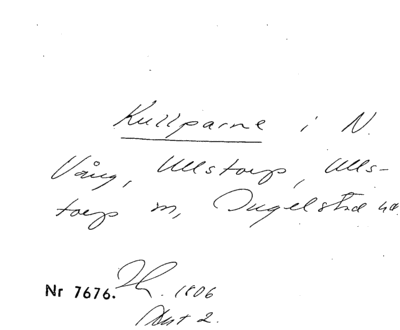 Kullparne i N.
Vång, Ullstorp, Ulls-
torp sn, Ingelstad hd.
Nr 7676. 1806
Akt 2.